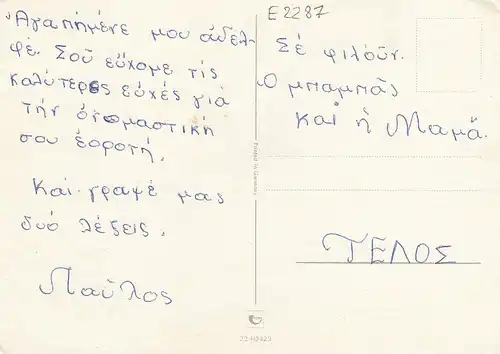 Αγαπημένε μου αδελ-
φέ. Σοῦ εὔχομε τίς
καλύτερες εὐχές γιά
τήν ὀνομαστική
σου ἑορτή.
Και γραψέ μας
δυό λέξεις.
Παῦλος
E 2287
Σέ φιλοῦν.
Ο μπαμπᾶς
καί ἡ Μαμά.
ΤΕΛΟΣ
Printed in Germany